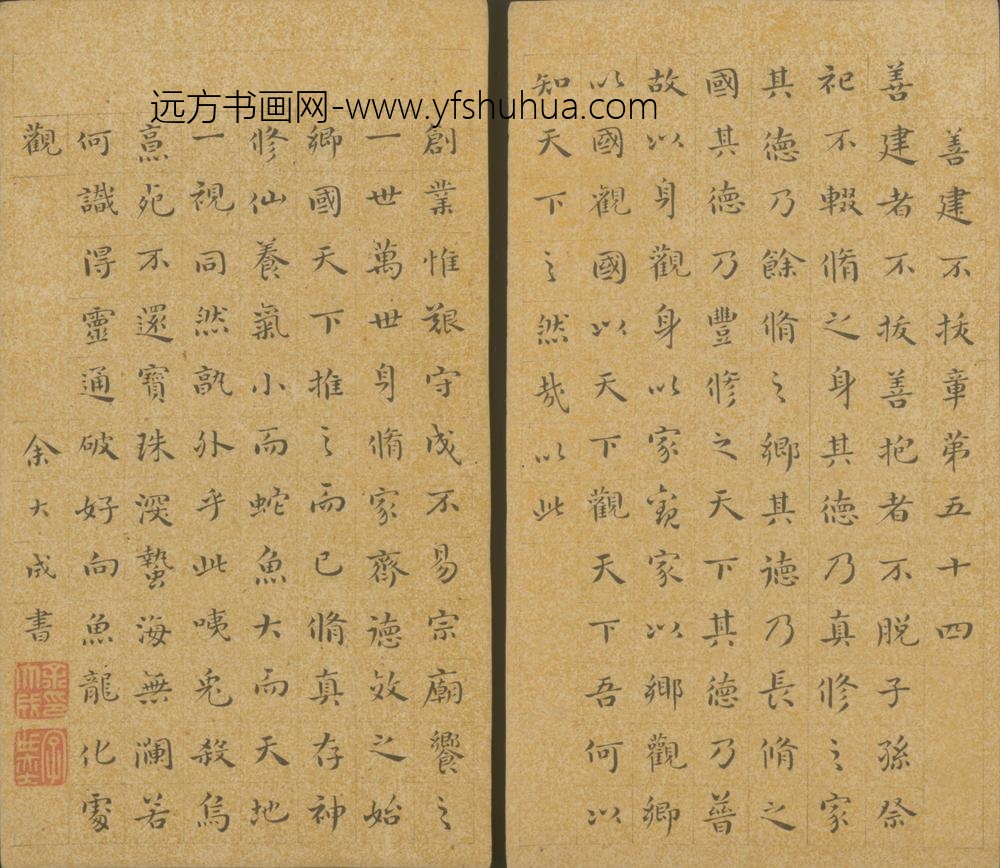 善建不拔章第五十四
善建者不拔善抱者不脱子孫祭
祀不輟脩之身其德乃真修之家
其德乃餘脩之鄉其德乃長脩之
國其德乃豐修之天下其德乃普
故以身觀身以家觀家以鄉觀鄉
以國觀國以天下觀天下吾何以
知天下之然哉以此
創業惟艱守成不易宗廟饗之
一世萬世身脩家齊德效之始
鄉國天下推之而已脩真存神
修仙養氣小而蛇魚大而天地
一視同然孰外乎此咦兎殺烏
不還寶珠深蟄海無澜若
何識得靈通破好向魚龍化處
觀
余大成書
远方书画网-www.yfshuhua.com